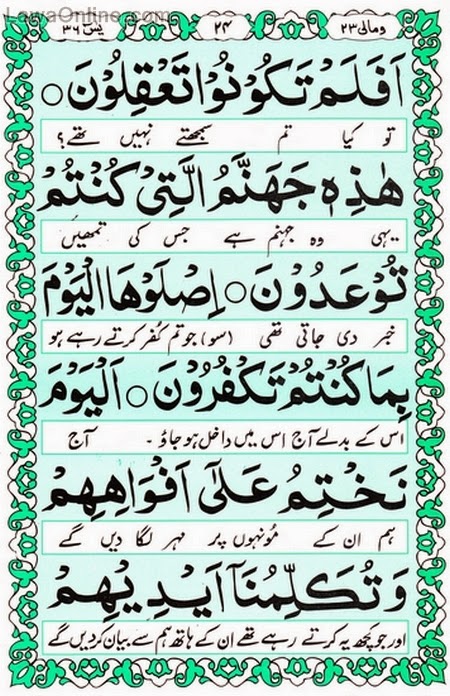 LawaOnline.com
ومالی ۲۳ ۲۴ یٰسٓ ۳۶
اَفَلَمْ تَكُوْنُوْا تَعْقِلُوْنَ ○
تو کیا تم سمجھتے نہیں تھے؟
هٰذِهٖ جَهَنَّمُ الَّتِيْ كُنْتُمْ
یہی وہ جہنم ہے جس کی تمھیں
تُوْعَدُوْنَ ○ اِصْلَوْهَا الْيَوْمَ
خبر دی جاتی تھی (سو) جو تم کفر کرتے رہے ہو
بِمَا كُنْتُمْ تَكْفُرُوْنَ ○ اَلْيَوْمَ
اس کے بدلے آج اس میں داخل ہو جاؤ ۔ آج
نَخْتِمُ عَلٰٓى اَفْوَاهِهِمْ
ہم ان کے مونہوں پر مہر لگا دیں گے
وَتُكَلِّمُنَآ اَيْدِيْهِمْ
اور جو کچھ یہ کرتے رہے تھے ان کے ہاتھ ہم سے بیان کردیں گے